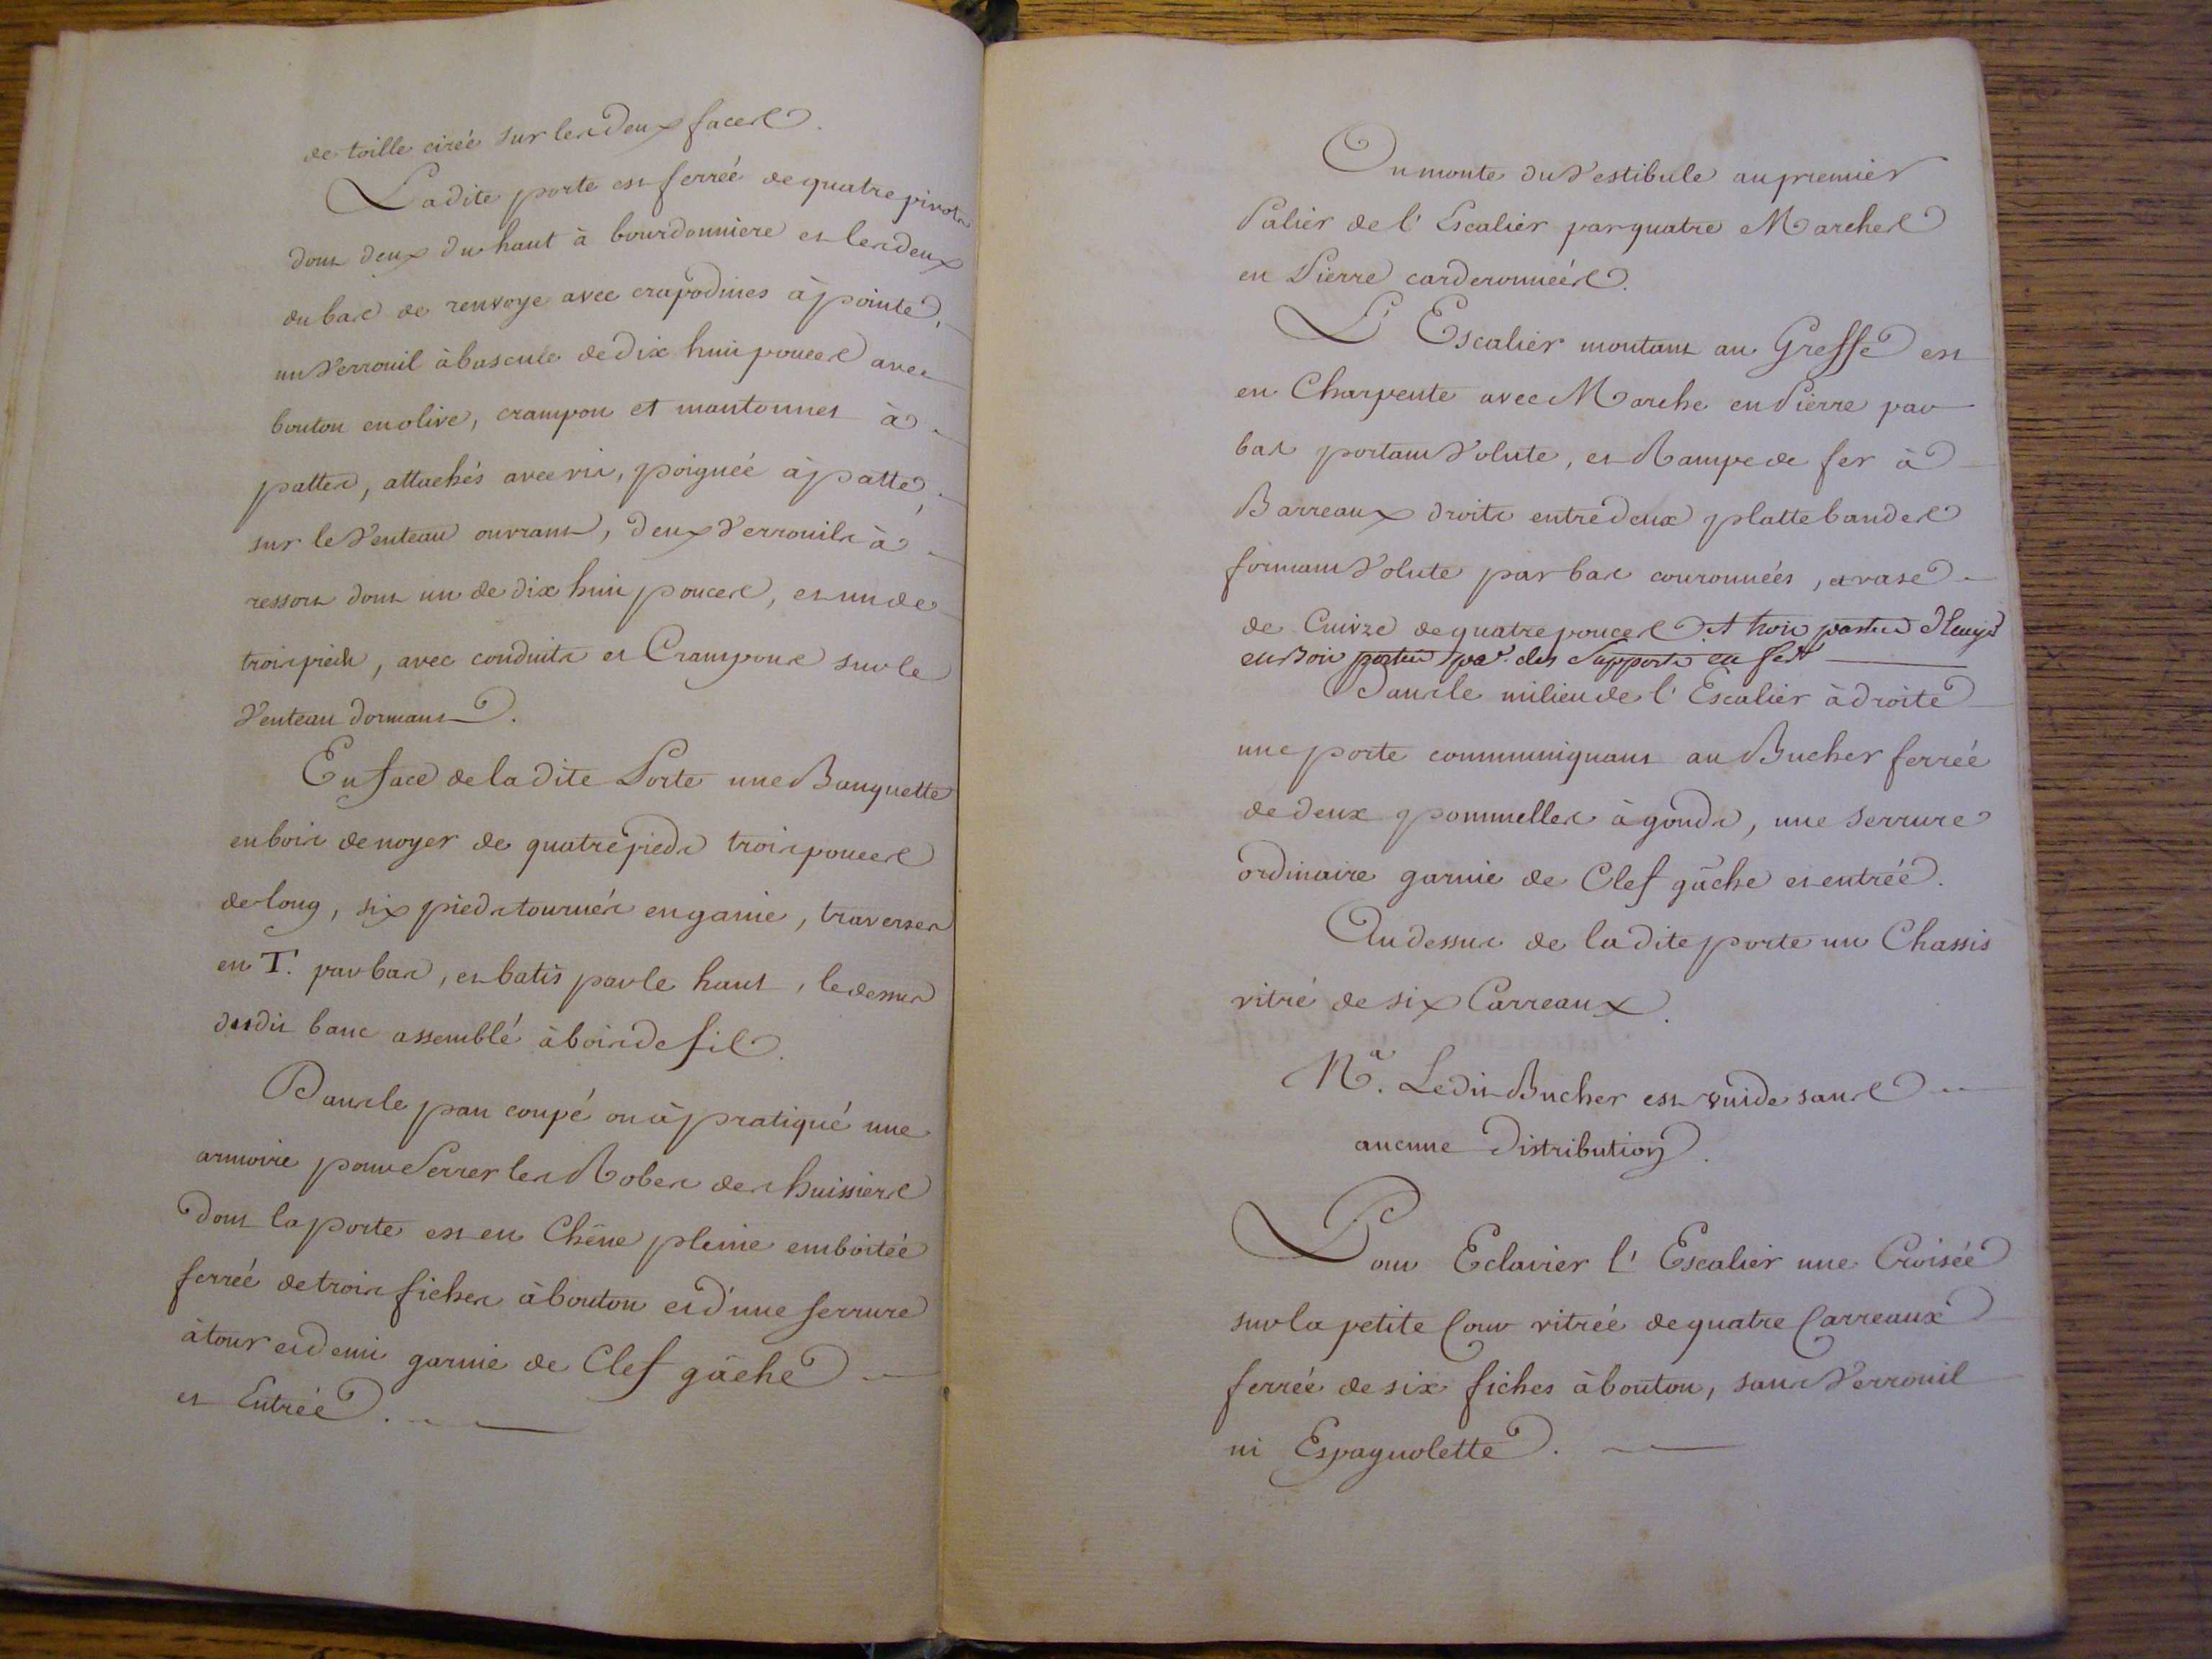 de toille cirée sur les deux faces.
Ladite porte est ferrée de quatre pivots
dont deux du haut à bourdonniere et les deux
du bas de renvoye avec crapodines à pointe,
un Verrouil à bascule de dix huit pouces avec
bouton en olive, crampon et mantonnet à
pattes, attachés avec vis, poignée à patte
sur le Venteau ouvrant, deux Verrouils à
ressort dont un de dix huit pouces, et un de
trois pieds, avec conduits et Crampons sur le
Venteau dormant.
En face de la dite Porte une Banquette
en bois de noyer de quatre pieds trois pouces
de long, six pieds tournés en gaine, traverses
en T. par bas, et batis par le haut, le dessus
dudit banc assemblé à bois de fil.
Dans le pan coupé on à pratiqué une
armoire pour Serrer les Robes des huissiers
dont la porte est en Chêne pleine emboitée
ferrée de trois fiches à bouton et d'une serrure
à tour et demi garnie de Clef gâche
et Entrée.
On monte du Vestibule au premier
Palier de l'Escalier par quatre Marches
en Pierre carderonnées.
L'Escalier montant au Greffe est
en Charpente avec Marche en Pierre par
bas portant Volute, et Rampe de fer à
Barreaux droits entre deux platte bandes
formant Volute par bas couronnées, a vase
de Cuivre de quatre pouces. et trois parties
en Bois portées par des Supports en fer
Dans le milieu de l'Escalier à droite
une porte communiquant au Bucher ferrée
de deux pommelles à gonds, une serrure
ordinaire garnie de Clef gâche et entrée.
Au dessus de la dite porte un Chassis
vitré de six Carreaux.
Na. Ledit Bucher est vuide sans
aucune Distribution.
Pour Eclairer l'Escalier une Croisée
sur la petite Cour vitrée de quatre Carreaux
ferrée de six fiches à bouton, sans Verrouil
ni Espagnolette.